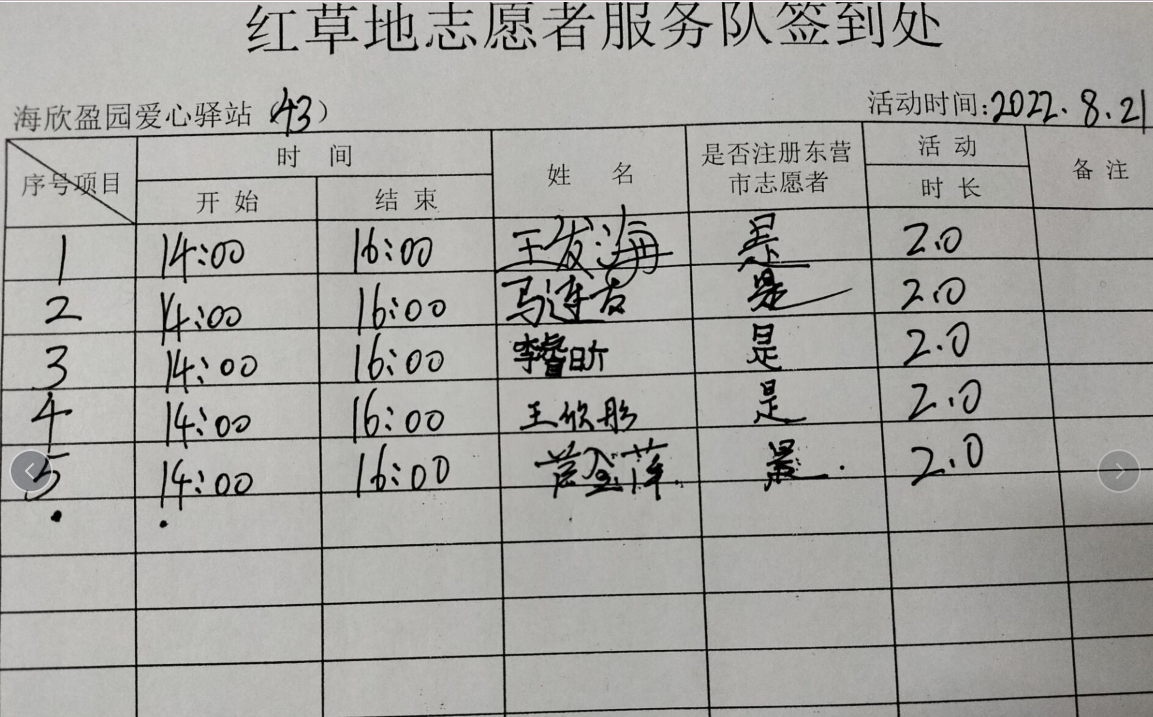 红草地志愿者服务队签到处
海欣盈园爱心驿站（43） 活动时间:2022.8.21
序号项目 时间 姓名 是否注册东营市志愿者 活动 备注
开始 结束 时长
1 14:00 16:00 王发海 是 2.0
2 14:00 16:00 马连友 是 2.0
3 14:00 16:00 李睿昕 是 2.0
4 14:00 16:00 王欣彤 是 2.0
5 14:00 16:00 金萍 是 2.0